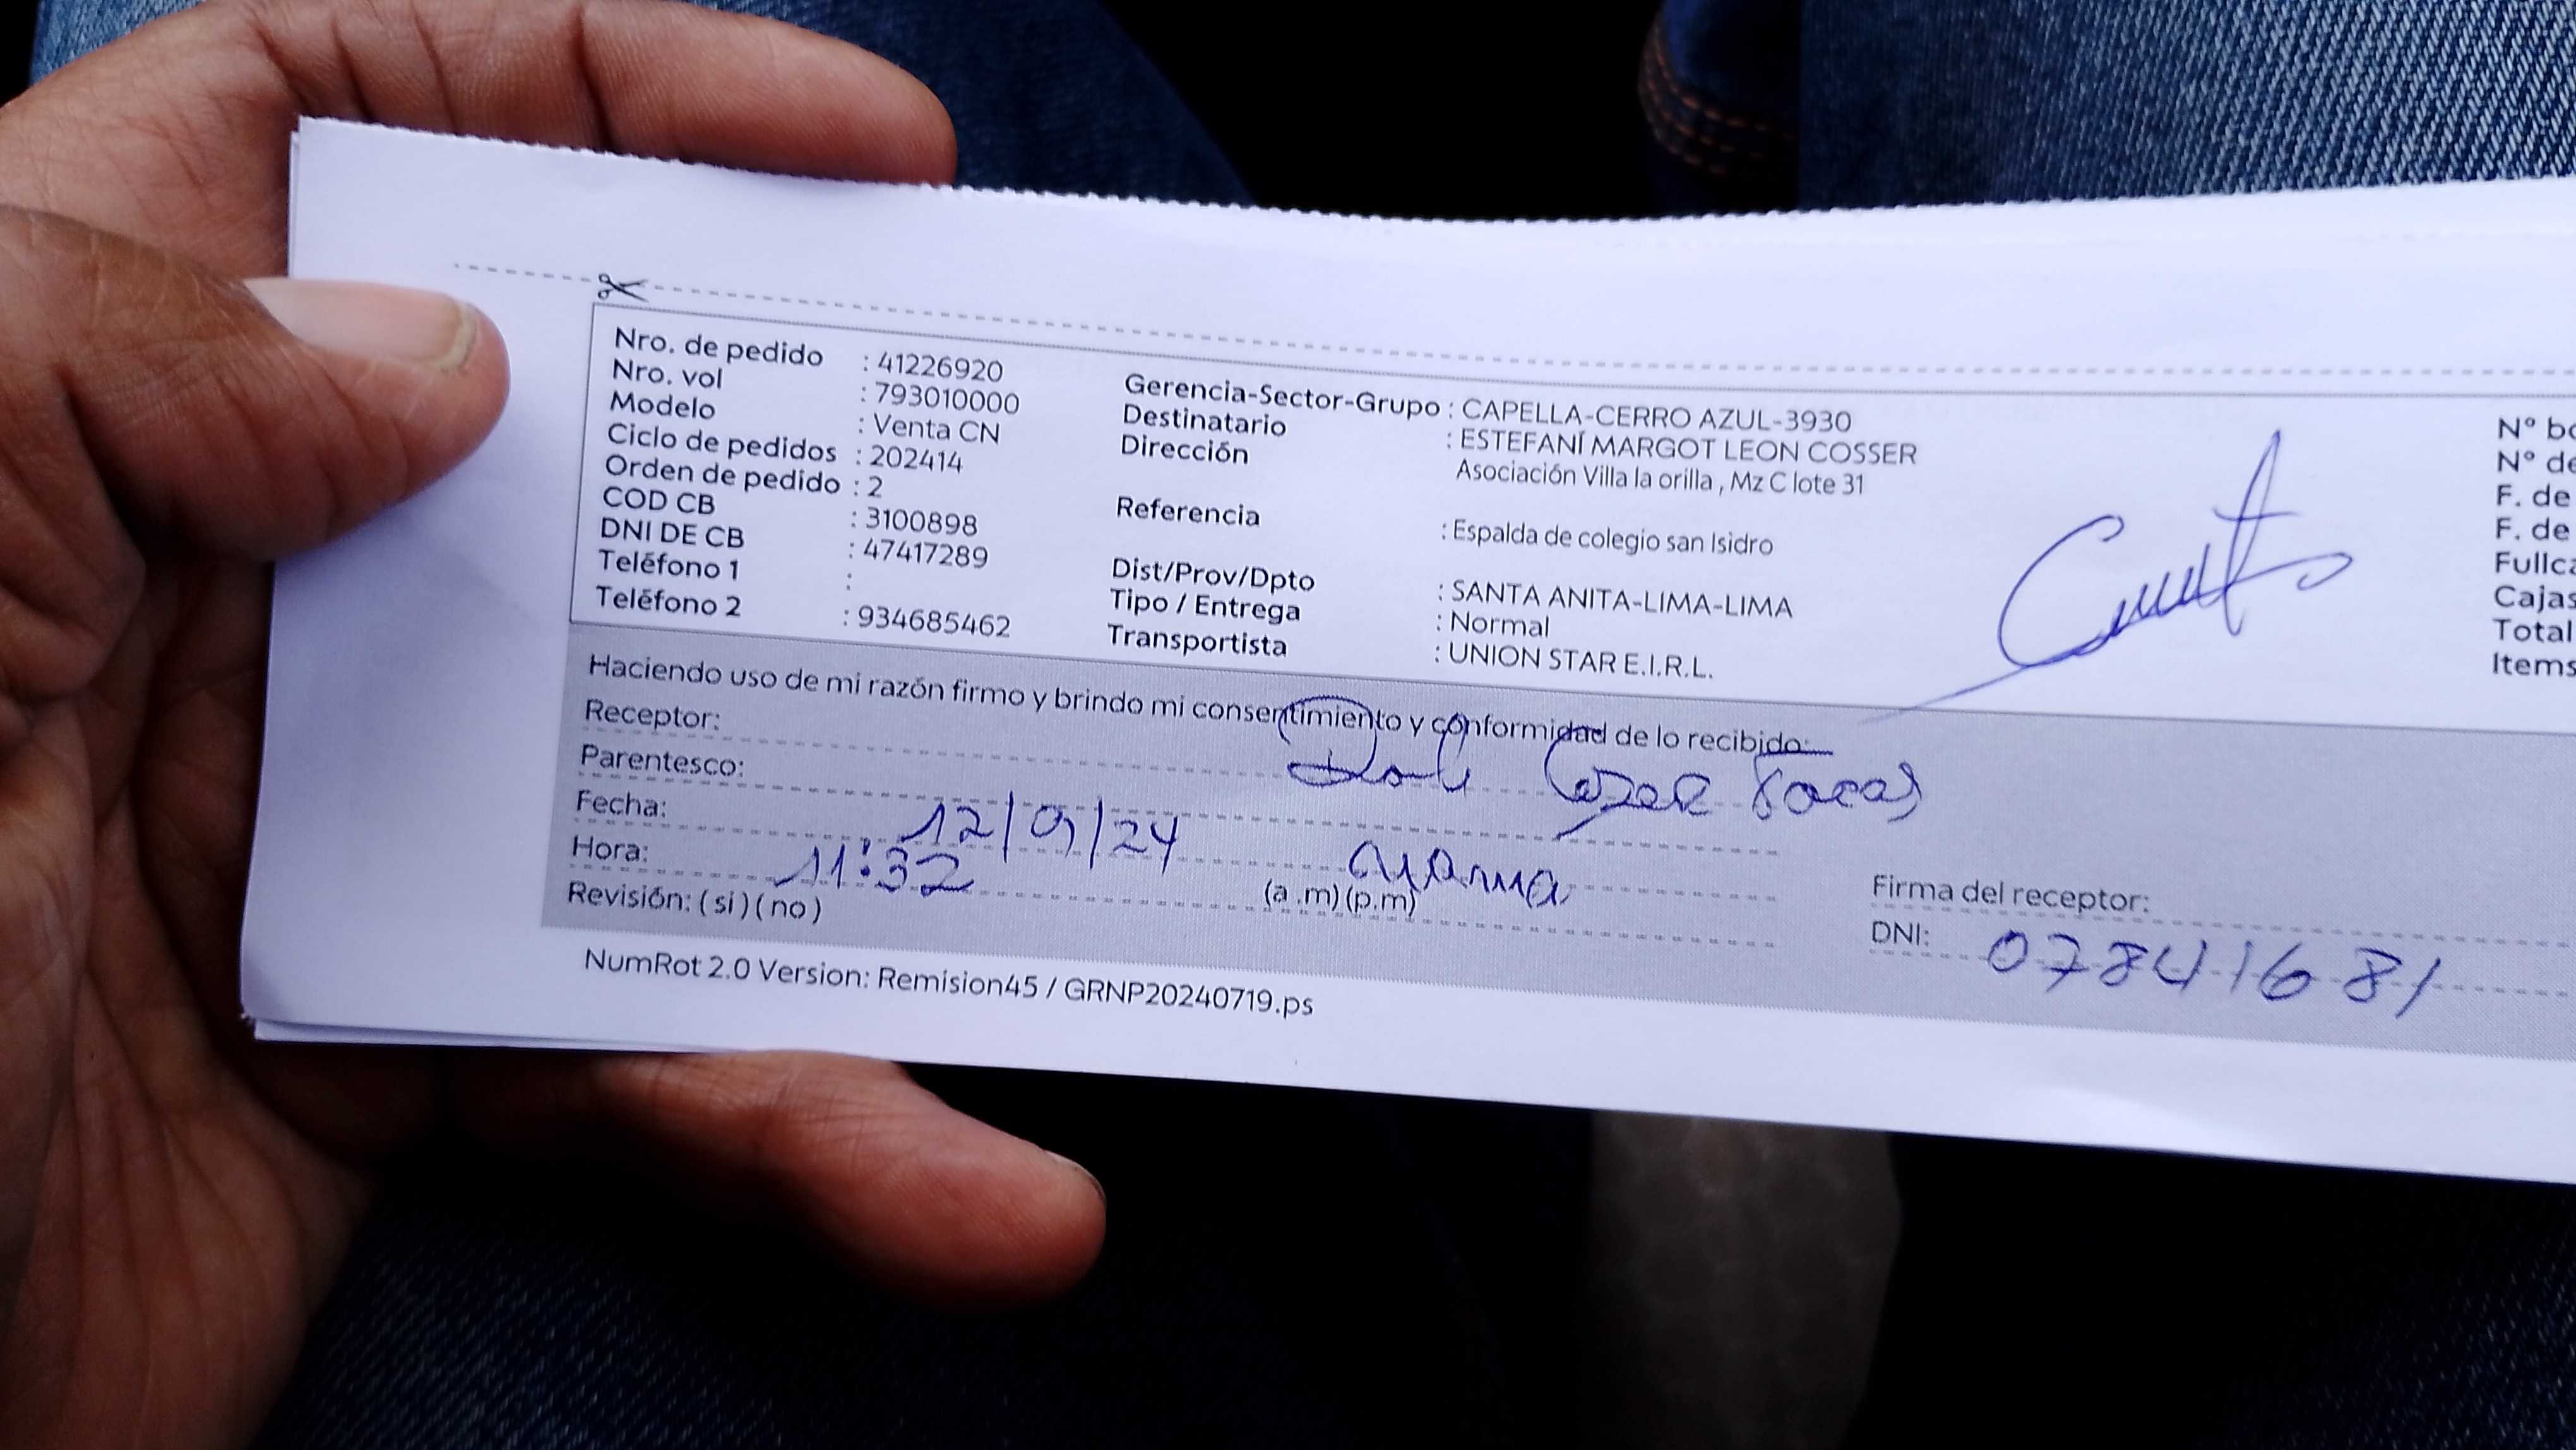 Nro. de pedido : 41226920
Nro. vol : 793010000
Modelo : Venta CN
Ciclo de pedidos : 202414
Orden de pedido : 2
COD CB : 3100898
DNI DE CB : 47417289
Teléfono 1 :
Teléfono 2 : 934685462
Gerencia-Sector-Grupo : CAPELLA-CERRO AZUL-3930
Destinatario : ESTEFANÍ MARGOT LEON COSSER
Dirección Asociación Villa la orilla , Mz C lote 31
Referencia : Espalda de colegio san Isidro
Dist/Prov/Dpto : SANTA ANITA-LIMA-LIMA
Tipo / Entrega : Normal
Transportista : UNION STAR E.I.R.L.
Nº
Nº
F. de
F. de
Cajas
Total
Items
Haciendo uso de mi razón firmo y brindo mi consentimiento y conformidad de lo recibido:
Receptor:
Parentesco:
Fecha: 12/9/24
Hora: 11:32 (a .m) (p.m)
Revisión: ( si ) ( no )
Firma del receptor:
DNI: 07841681
NumRot 2.0 Version: Remision45 / GRNP20240719.ps